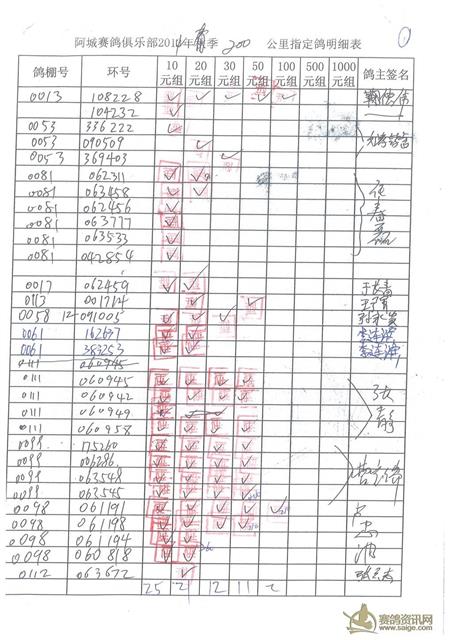 阿城赛鸽俱乐部201 年 季 200 公里指定鸽明细表
鸽棚号 环号 10元组 20元组 30元组 50元组 100元组 500元组 1000元组 鸽主签名
0013 108228 ✓ ✓ ✓ ✓ ✓
104232 ✓
0053 336222 ✓
0053 090509 ✓
0053 369403 ✓
0081 062311 ✓ ✓
0081 063458 ✓ ✓
0081 062456 ✓
0081 063777 ✓
0081 063533 ✓
0081 042854 ✓
0017 062459 ✓ ✓
0113 001714 ✓ ✓
0058 12-091005 ✓ ✓ ✓
0061 162637 ✓ ✓
0061 383253 ✓ ✓
0111 060945
0111 060945 ✓ ✓ ✓ ✓
0111 060942 ✓ ✓ ✓ ✓
0111 060949 ✓
0111 060958 ✓ ✓ ✓ ✓ 张静
0099 75260 ✓ ✓ ✓ ✓
0099 006286 ✓ ✓ ✓ ✓
0099 063548 ✓ ✓ ✓ ✓
0099 063545 ✓ ✓ ✓ ✓
0098 061191 ✓ ✓ ✓ ✓ ✓
0098 061198 ✓ ✓ ✓ ✓
0098 061194 ✓ ✓
0098 060818 ✓ ✓
0112 063672 ✓
25 2 12 11 2
赛鸽资讯网
www.saige.com